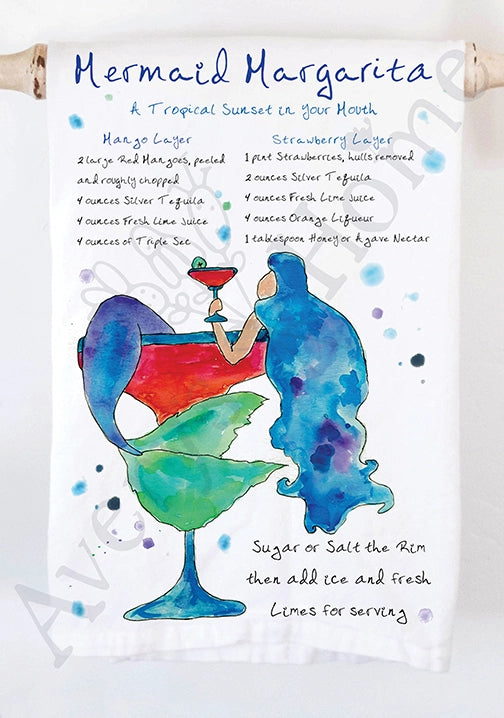 Mermaid Margarita
A Tropical Sunset in Your Mouth
Mango Layer
2 large Red Mangoes, peeled
and roughly chopped
4 ounces Silver Tequila
4 ounces Fresh Lime Juice
4 ounces of Triple Sec
Strawberry Layer
1 pint Strawberries, hulls removed
2 ounces Silver Tequila
4 ounces Fresh Lime Juice
4 ounces Orange Liqueur
1 tablespoon Honey or Agave Nectar
Sugar or Salt the Rim
then add ice and fresh
Limes for serving
Home